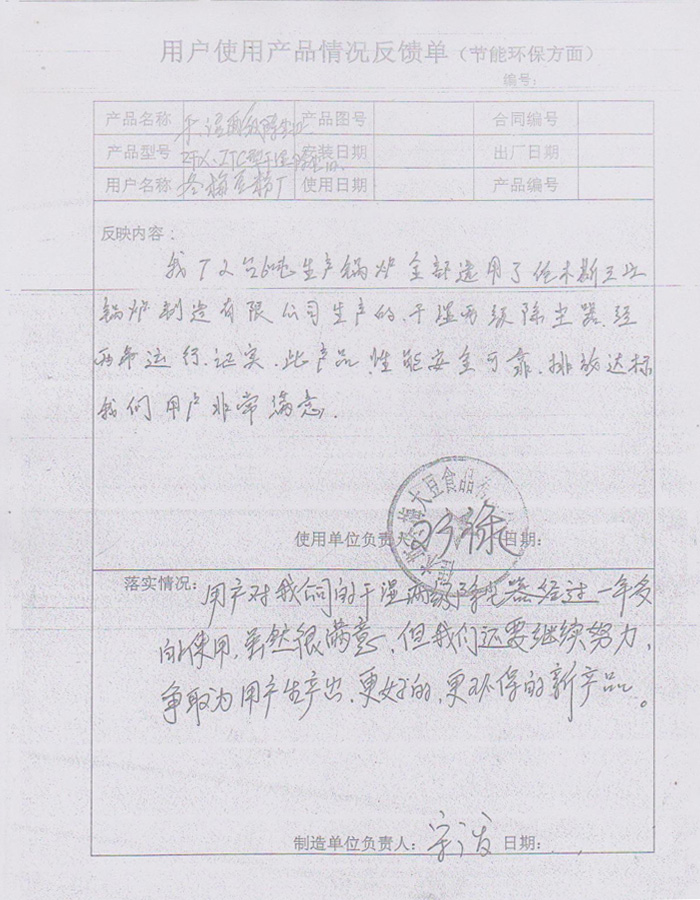 用户使用产品情况反馈单（节能环保方面）
编号：
产品名称 干湿两级除尘 产品图号 合同编号
产品型号 安装日期 出厂日期
用户名称 冬梅豆粉厂 使用日期 产品编号
反映内容：
我厂2台6吨生产锅炉全部选用了佳木斯
锅炉制造有限公司生产的.干湿两级除尘器.经
两年运行.证实.此产品.性能安全可靠.排放达标
我们用户非常满意.
大豆食品
使用单位负责人 日期：
落实情况：用户对我公司的干湿两级除尘器经过一年多
的使用,虽然很满意,但我们还要继续努力,
争取为用户生产出,更好的,更环保的新产品。
制造单位负责人： 日期：